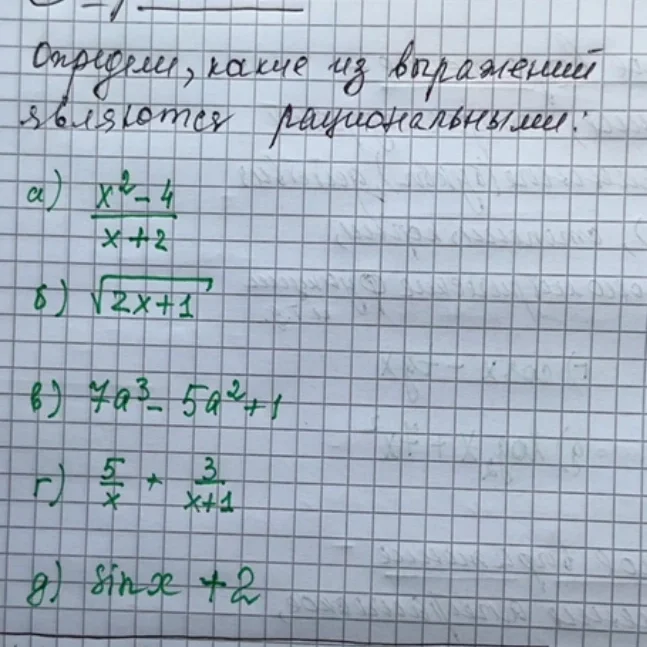 Определи, какие из выражений
являются рациональными:
а) \frac{x^2-4}{x+2}
б) \sqrt{2x+1}
в) 7a^3 - 5a^2 + 1
г) \frac{5}{x} + \frac{3}{x+1}
д) sin x + 2